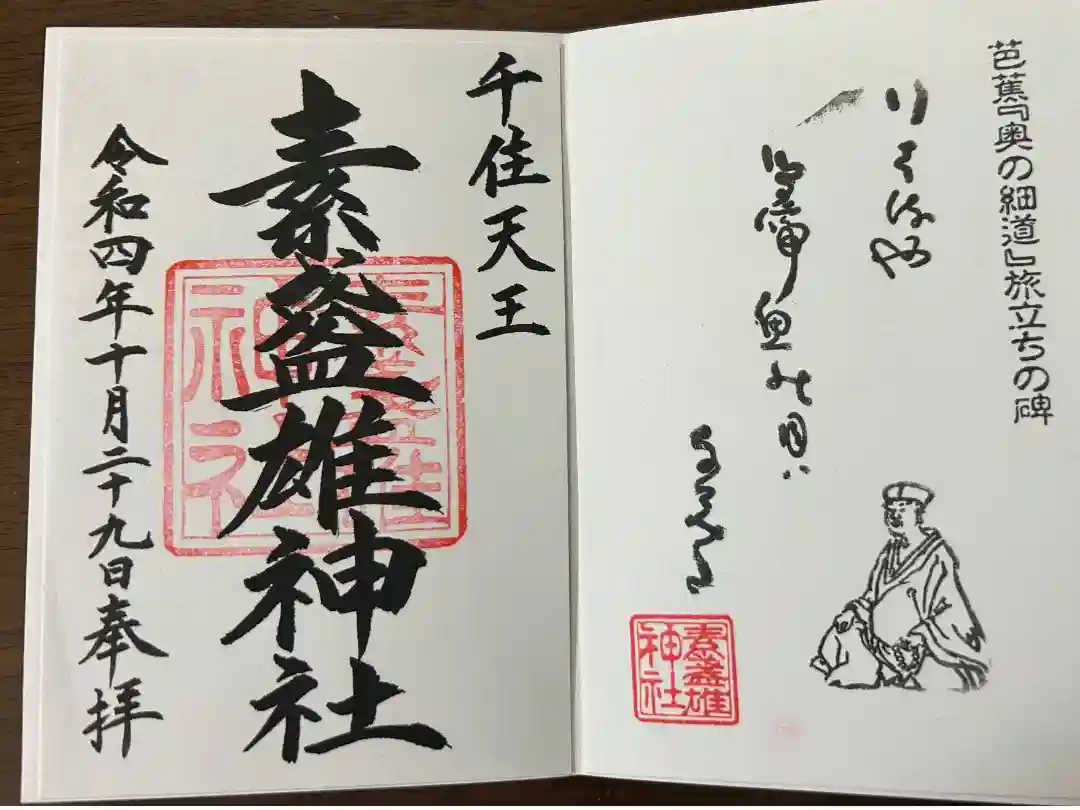 芭蕉『奥の細道』旅立ちの碑
行はるや
鳥啼魚の目ハ
なみだ
素盞雄
神社
千住天王
素盞雄神社
令和四年十月二十九日奉拝